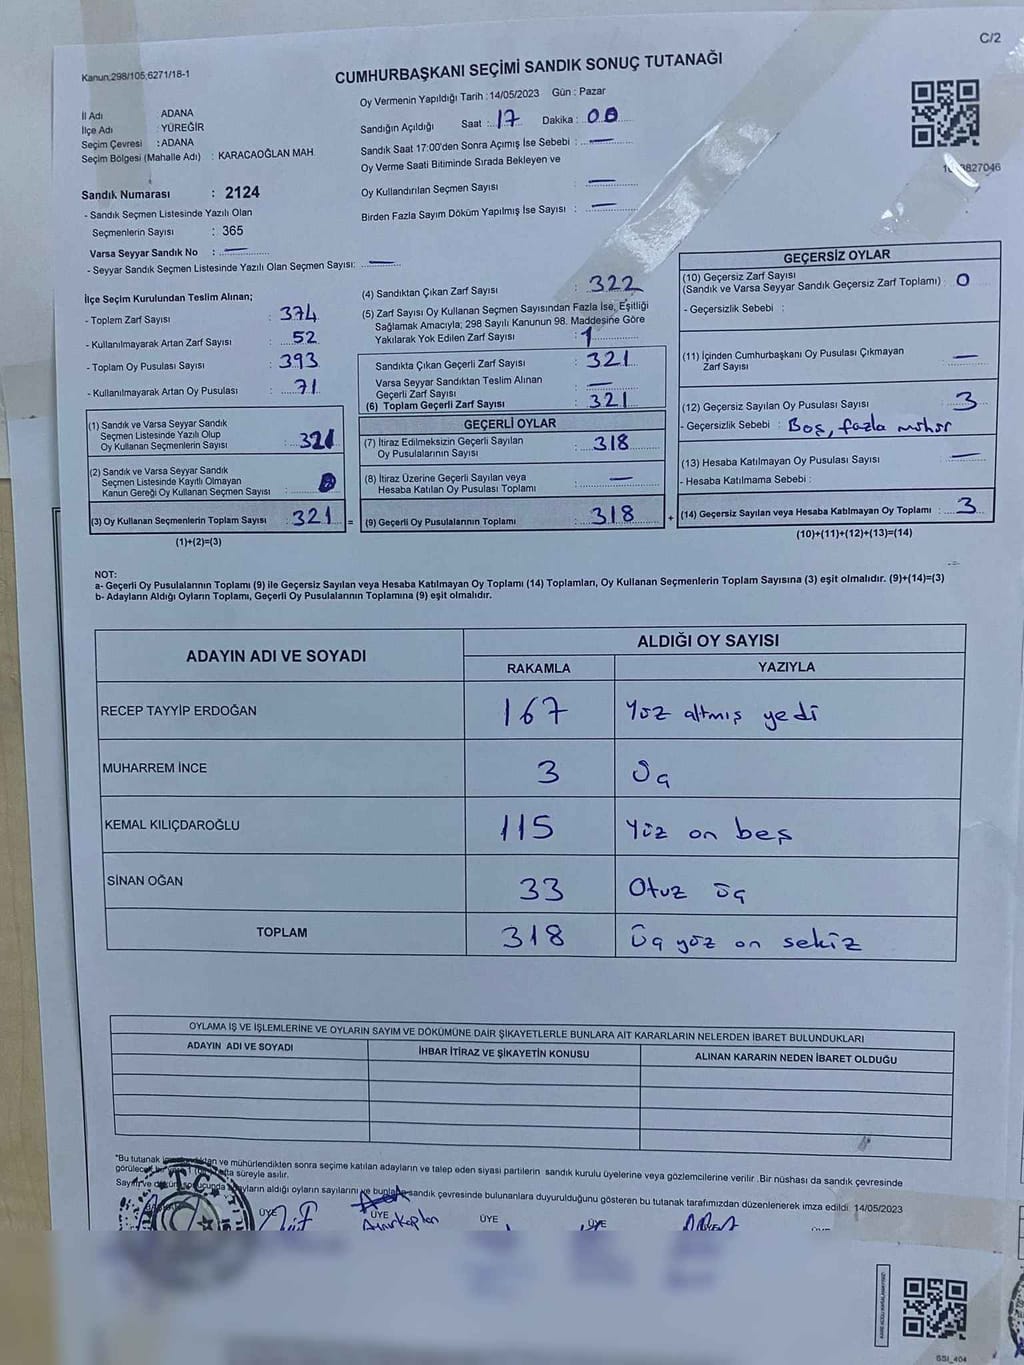 C/2
Kanun;298/105;6271/18-1
CUMHURBAŞKANI SEÇİMİ SANDIK SONUÇ TUTANAĞI
İl Adı ADANA
İlçe Adı : YÜREĞİR
Seçim Çevresi : ADANA
Seçim Bölgesi (Mahalle Adı) : KARACAOĞLAN MAH
Sandık Numarası : 2124
- Sandık Seçmen Listesinde Yazılı Olan
Seçmenlerin Sayısı : 365
Varsa Seyyar Sandık No : —
- Seyyar Sandık Seçmen Listesinde Yazılı Olan Seçmen Sayısı: —
Oy Vermenin Yapıldığı Tarih : 14/05/2023 Gün : Pazar
Sandığın Açıldığı Saat : 17 Dakika : 00
Sandık Saat 17:00'den Sonra Açımış İse Sebebi : —
Oy Verme Saati Bitiminde Sırada Bekleyen ve
Oy Kullandırılan Seçmen Sayısı : —
Birden Fazla Sayım Döküm Yapılmış İse Sayısı : —
İlçe Seçim Kurulundan Teslim Alınan;
- Toplam Zarf Sayısı : 374
- Kullanılmayarak Artan Zarf Sayısı : 52
- Toplam Oy Pusulası Sayısı : 393
- Kullanılmayarak Artan Oy Pusulası : 71
(1) Sandık ve Varsa Seyyar Sandık
Seçmen Listesinde Yazılı Olup
Oy Kullanan Seçmenlerin Sayısı : 321
(2) Sandık ve Varsa Seyyar Sandık
Seçmen Listesinde Kayıtlı Olmayan
Kanun Gereği Oy Kullanan Seçmen Sayısı :
(3) Oy Kullanan Seçmenlerin Toplam Sayısı : 321 =
(1)+(2)=(3)
(4) Sandıktan Çıkan Zarf Sayısı : 322
(5) Zarf Sayısı Oy Kullanan Seçmen Sayısından Fazla İse, Eşitliği
Sağlamak Amacıyla; 298 Sayılı Kanunun 98. Maddesine Göre
Yakılarak Yok Edilen Zarf Sayısı : 1
Sandıkta Çıkan Geçerli Zarf Sayısı : 321
Varsa Seyyar Sandıktan Teslim Alınan
Geçerli Zarf Sayısı : —
(6) Toplam Geçerli Zarf Sayısı : 321
GEÇERLİ OYLAR
(7) İtiraz Edilmeksizin Geçerli Sayılan
Oy Pusulalarının Sayısı : 318
(8) İtiraz Üzerine Geçerli Sayılan veya
Hesaba Katılan Oy Pusulası Toplamı : —
(9) Geçerli Oy Pusulalarının Toplamı : 318 +
GEÇERSİZ OYLAR
(10) Geçersiz Zarf Sayısı
(Sandık ve Varsa Seyyar Sandık Geçersiz Zarf Toplamı) : 0
- Geçersizlik Sebebi :
(11) İçinden Cumhurbaşkanı Oy Pusulası Çıkmayan
Zarf Sayısı : —
(12) Geçersiz Sayılan Oy Pusulası Sayısı : 3
- Geçersizlik Sebebi : Boş, fazla mühür
(13) Hesaba Katılmayan Oy Pusulası Sayısı : —
- Hesaba Katılmama Sebebi :
(14) Geçersiz Sayılan veya Hesaba Katılmayan Oy Toplamı : 3
(10)+(11)+(12)+(13)=(14)
NOT:
a- Geçerli Oy Pusulalarının Toplamı (9) ile Geçersiz Sayılan veya Hesaba Katılmayan Oy Toplamı (14) Toplamları, Oy Kullanan Seçmenlerin Toplam Sayısına (3) eşit olmalıdır. (9)+(14)=(3)
b- Adayların Aldığı Oyların Toplamı, Geçerli Oy Pusulalarının Toplamına (9) eşit olmalıdır.
ADAYIN ADI VE SOYADI ALDIĞI OY SAYISI
RAKAMLA YAZIYLA
RECEP TAYYİP ERDOĞAN 167 Yüz altmış yedi
MUHARREM İNCE 3 Üç
KEMAL KILIÇDAROĞLU 115 Yüz on beş
SİNAN OĞAN 33 Otuz üç
TOPLAM 318 Üç yüz on sekiz
OYLAMA İŞ VE İŞLEMLERİNE VE OYLARIN SAYIM VE DÖKÜMÜNE DAİR ŞİKAYETLERLE BUNLARA AİT KARARLARIN NELERDEN İBARET BULUNDUKLARI
ADAYIN ADI VE SOYADI İHBAR İTİRAZ VE ŞİKAYETİN KONUSU ALINAN KARARIN NEDEN İBARET OLDUĞU
*Bu tutanak ve mühürlendikten sonra seçime katılan adayların ve talep eden siyasi partilerin sandık kurulu üyelerine veya gözlemcilerine verilir. Bir nüshası da sandık çevresinde
görülecek bir hafta süreyle asılır.
Sayım ve döküm sonucunda adayların aldığı oyların sayılarını ve bunların sandık çevresinde bulunanlara duyurulduğunu gösteren bu tutanak tarafımızdan düzenlenerek imza edildi. 14/05/2023
ÜYE ÜYE ÜYE ÜYE
T.C.
SSI_404